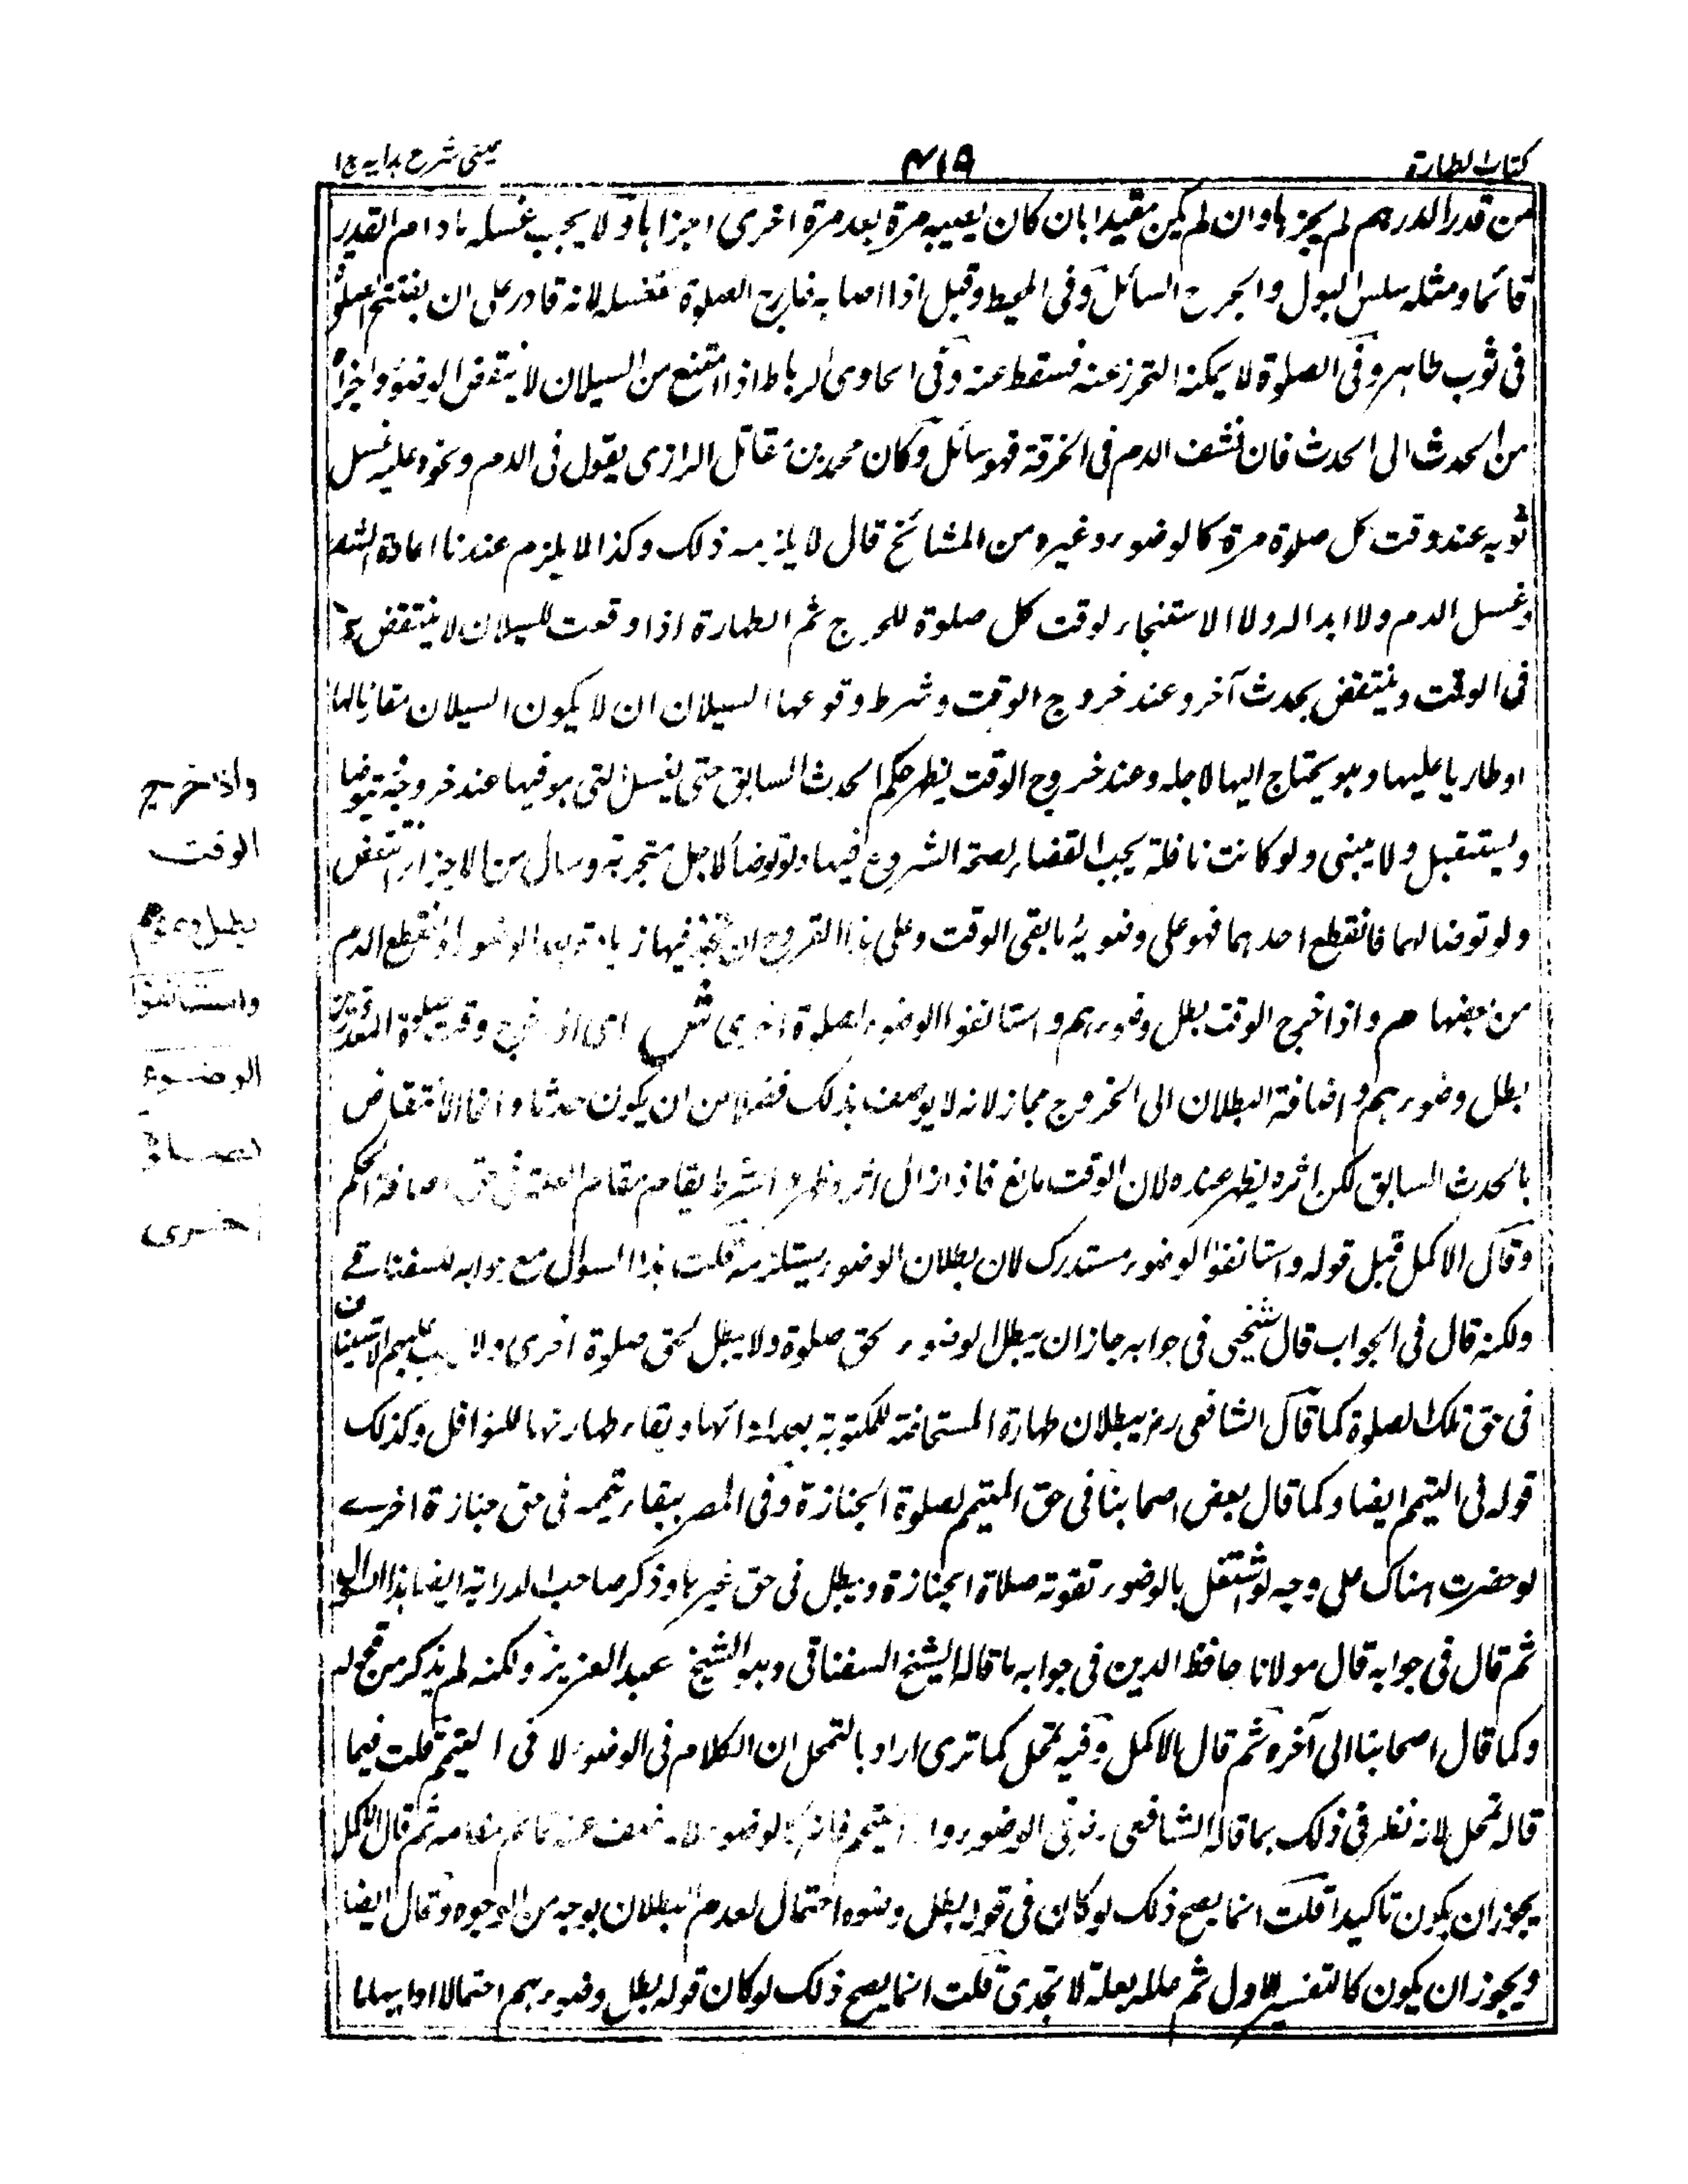 كتاب الطهارة
٤١٩
عینی شرح ہدایہ ج ١
من قدر الدرهم لم يجزها وان لم يكن مقيدا بان كان يصيبه مرة بعد مرة اخرى اجزاها ولا يجب غسله مادام القدر
قائما ومثله سلس البول والجرح السائل وفى المحيط وقيل اذا اصابه خارج الصلوة يغسله لانه قادر على ان يفتتح الصلوة
فى ثوب طاهر وفى الصلوة لا يمكنه التحرز عنه فسقط عنه وفى الحاوى الرباط اذا امتنع من السيلان لا ينتقض الوضوء واجزأ
من الحدث الى الحدث فان نشف الدم فى الخرقة فهو سائل وكان محمد بن مقاتل الرازى يقول فى الدم ونحوه عليه غسل
ثوبه عند وقت كل صلوة مرة كالوضوء وغيره من المشائخ قال لا يلزمه ذلك وكذا لا يلزم عندنا اعادة الشد
وغسل الدم ولا ابداله ولا الاستنجاء لوقت كل صلوة للحرج ثم الطهارة اذا وقعت للسيلان لا ينتقض به
فى الوقت وينتقض بحدث آخر وعند خروج الوقت وشرط وقوعها السيلان ان لا يكون السيلان مقارنا لها
او طاريا عليها وهو يحتاج اليها لاجله وعند خروج الوقت يظهر حكم الحدث السابق حتى يغسل التى هو فيها عند خروجه يتوضا
ويستقبل ولا يبنى ولو كانت نافلة يجب القضاء لصحة الشروع فيها ولو توضأ لاجل منخريه وسال من الاخر انتقض
ولو توضا لهما فانقطع احدهما فهو على وضوئه ما بقى الوقت وعلى هذا القروح ان تجدد فيها زيادة بعد الوضوء او انقطع الدم
من بعضها م واذا خرج الوقت بطل وضوءهم واستانفوا الوضوء لصلوة اخرى ش اى اذا خرج وقت صلوة المعذورين
بطل وضوءهم واضافة البطلان الى الخروج مجاز لانه لا يوصف بذلك فضلا من ان يكون حدثا وانما الانتقاض
بالحدث السابق لكن اثره يظهر عنده لان الوقت مانع فاذا زال اثره ظهر والشرط يقام مقام العلة فى حق اضافة الحكم
وقال الاكمل قيل قوله واستانفوا الوضوء مستدرك لان بطلان الوضوء يستلزمه قلت هذا السوال مع جوابه للسفناقى
ولكنه قال فى الجواب قال شيخى فى جوابه جاز ان يبطل الوضوء لحق صلوة ولا يبطل لحق صلوة اخرى ولا يجب عليهم الاستيناف
فى حق تلك الصلوة كما قال الشافعى رض ببطلان طهارة المستحاضة للمكتوبة بعد ادائها وبقاء طهارتها للنوافل وكذلك
قوله فى التيمم ايضا وكما قال بعض اصحابنا فى حق المتيمم لصلوة الجنازة وفى المصر ببقاء تيممه فى حق جنازة اخرى
لو حضرت هناك على وجه لو اشتغل بالوضوء تفوته صلاة الجنازة ويبطل فى حق غيرها وذكر صاحب الدراية ايضا هذا السوال
ثم قال فى جوابه قال مولانا حافظ الدين فى جوابه ما قاله الشيخ السفناقى وهو الشيخ عبد العزيز ولكنه لم يذكر من قوله
وكما قال اصحابنا الى آخره ثم قال الاكمل وفيه تمحل كما ترى اراد بالتمحل ان الكلام فى الوضوء لا فى التيمم قلت فيما
قاله تمحل لانه نظر فى ذلك بما قاله الشافعى رض فى الوضوء والتيمم فانه كالوضوء لانه خلف عنه قائم مقامه ثم قال الاكمل
يجوز ان يكون تاكيدا قلت انما يصح ذلك لو كان فى قوله بطل وضوءه احتمال لعدم البطلان بوجه من الوجوه وقال ايضا
ويجوز ان يكون كالتفسير للاول ثم علله بعلة لا تجدى قلت انما يصح ذلك لو كان قوله بطل وضوءهم احتمالا او ايهاما
واذا خرج
الوقت
بطل وضوءهم
واستانفوا
الوضوء
لصلوة
اخرى